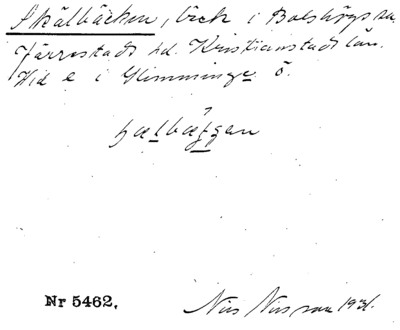 Skälbäcken, bäck i Bolshögs sn,
Järrestads hd. Kristianstads län.
Vid e i Glimminge ö.
Nr 5462.
Nils Nilsson 1931.